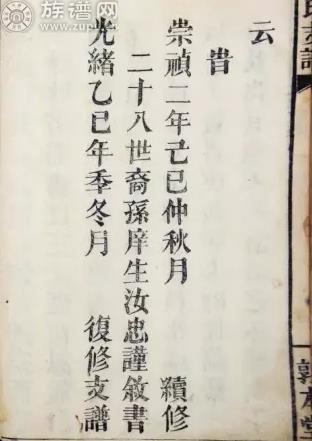 云
旹
崇禎二年己巳仲秋月 續修
二十八世裔孫庠生汝忠謹敘書
光緒乙巳年季冬月 復修支譜
族谱网
www.zupu.cn